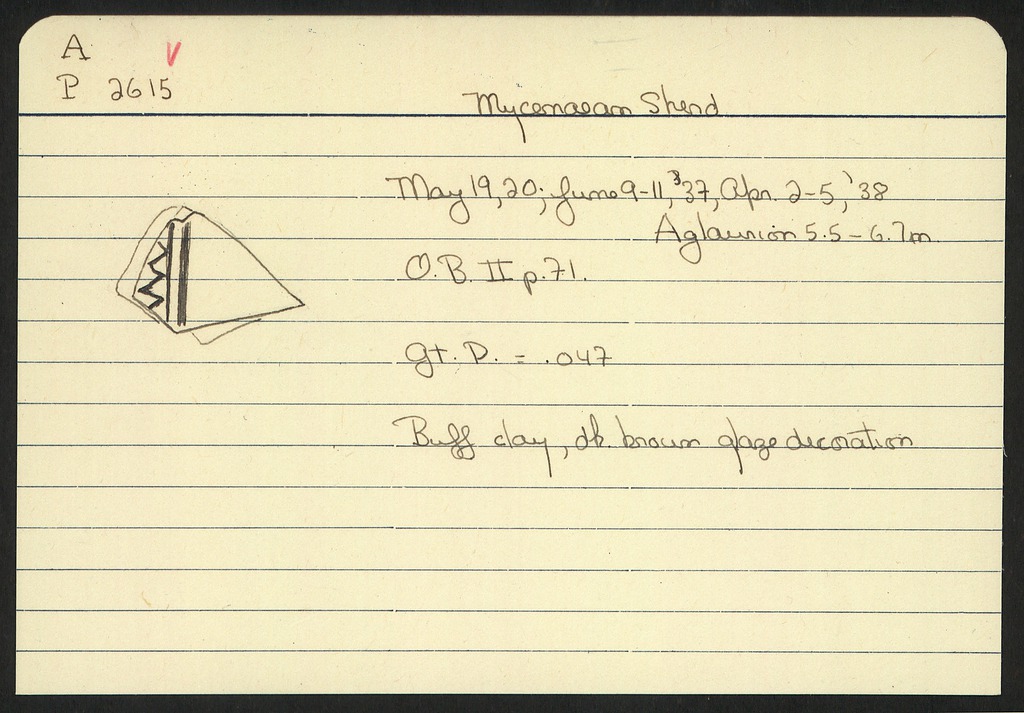 A
P 2615
Mycenaean Sherd
May 19, 20; June 9-11, '37, Apr. 2-5, '38
Aglaurion 5.5 - 6.7m.
O.B. II p. 71.
gt. D. = .047
Buff clay, dk. brown glaze decoration